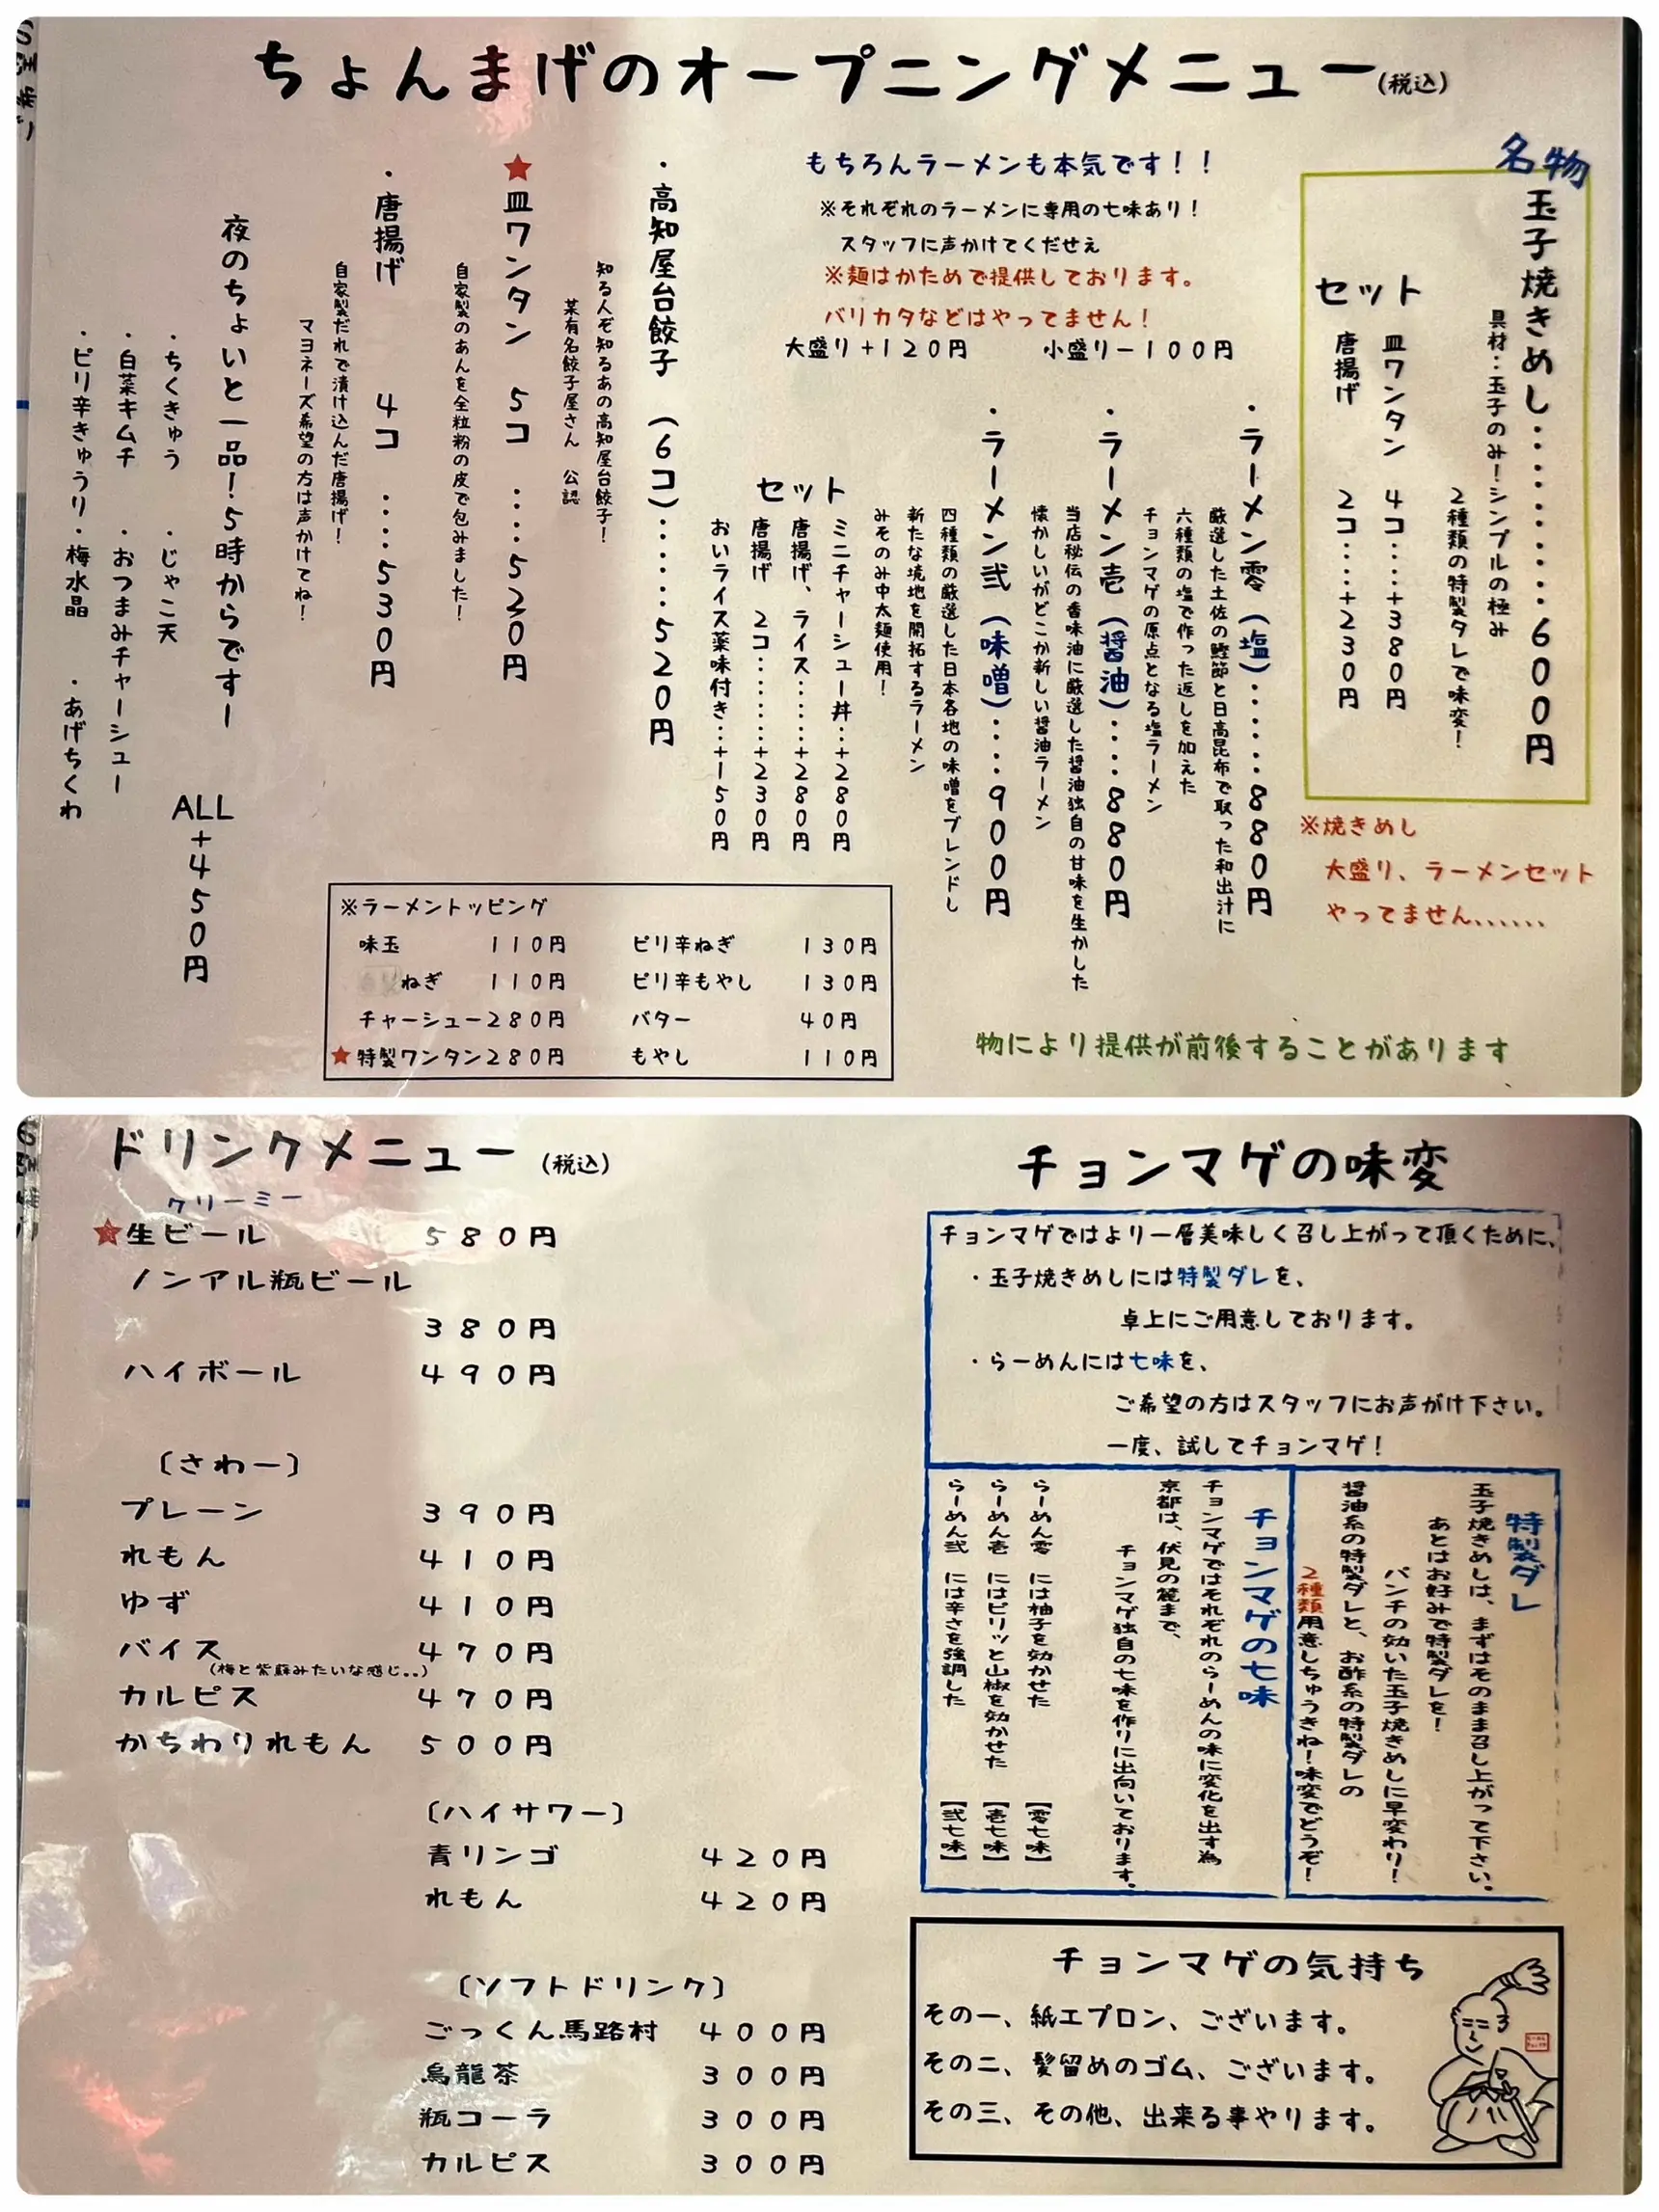 ちょんまげのオープニングメニュー(税込)
名物
玉子焼きめし・・・・・・・・・600円
具材：玉子のみ！シンプルの極み
2種類の特製タレで味変！
セット
皿ワンタン 4コ・・・・+380円
唐揚げ 2コ・・・・+230円
※焼きめし
大盛り、ラーメンセット
やってません......
もちろんラーメンも本気です！！
※それぞれのラーメンに専用の七味あり！
スタッフに声かけてくだせえ
※麺はかためで提供しております。
バリカタなどはやってません！
大盛り+120円 小盛りー100円
・ラーメン零（塩）・・・・・880円
厳選した土佐の鰹節と日高昆布で取った和出汁に
六種類の塩で作った返しを加えた
チョンマゲの原点となる塩ラーメン
・ラーメン壱（醤油）・・・・880円
当店秘伝の香味油に厳選した醤油独自の甘味を生かした
懐かしいがどこか新しい醤油ラーメン
・ラーメン弐（味噌）・・・・900円
四種類の厳選した日本各地の味噌をブレンドし
新たな境地を開拓するラーメン
みそのみ中太麺使用！
セット
ミニチャーシュー丼・・・+280円
唐揚げ、ライス・・・・・+280円
唐揚げ 2コ・・・・・・・+230円
おいライス薬味付き・・・+150円
・高知屋台餃子（6コ）・・・・・・520円
知る人ぞ知るあの高知屋台餃子！
某有名餃子屋さん 公認
★皿ワンタン 5コ ・・・・530円
自家製のあんを全粒粉の皮で包みました！
・唐揚げ 4コ ・・・・530円
自家製だれで漬け込んだ唐揚げ！
マヨネーズ希望の方は声かけてね！
夜のちょいと一品！5時からですー
ALL+450円
・ちくきゅう ・じゃこ天
・白菜キムチ ・おつまみチャーシュー
・ピリ辛きゅうり・梅水晶 ・あげちくわ
※ラーメントッピング
味玉 110円 ピリ辛ねぎ 130円
ねぎ 110円 ピリ辛もやし 130円
チャーシュー280円 バター 40円
★特製ワンタン280円 もやし 110円
物により提供が前後することがあります
ドリンクメニュー (税込)
クリーミー
★生ビール 580円
ノンアル瓶ビール
380円
ハイボール 490円
〔さわー〕
プレーン 390円
れもん 410円
ゆず 410円
バイス 470円
(梅と紫蘇みたいな感じ..)
カルピス 470円
かちわりれもん 500円
〔ハイサワー〕
青リンゴ 420円
れもん 420円
〔ソフトドリンク〕
ごっくん馬路村 400円
烏龍茶 300円
瓶コーラ 300円
カルピス 300円
チョンマゲの味変
チョンマゲではより一層美味しく召し上がって頂くために、
・玉子焼きめしには特製ダレを、
卓上にご用意しております。
・らーめんには七味を、
ご希望の方はスタッフにお声がけ下さい。
一度、試してチョンマゲ！
特製ダレ
玉子焼きめしは、まずはそのまま召し上がって下さい。
あとはお好みで特製ダレを！
パンチの効いた玉子焼きめしに早変わり！
醤油系の特製ダレと、お酢系の特製ダレの
2種類用意しちゅうきね！味変でどうぞ！
チョンマゲの七味
チョンマゲではそれぞれのらーめんの味に変化を出す為
京都は、伏見の麓まで、
チョンマゲ独自の七味を作りに出向いております。
らーめん零 には柚子を効かせた 【零七味】
らーめん壱 にはピリッと山椒を効かせた 【壱七味】
らーめん弐 には辛さを強調した 【弐七味】
チョンマゲの気持ち
その一、紙エプロン、ございます。
その二、髪留めのゴム、ございます。
その三、その他、出来る事やります。